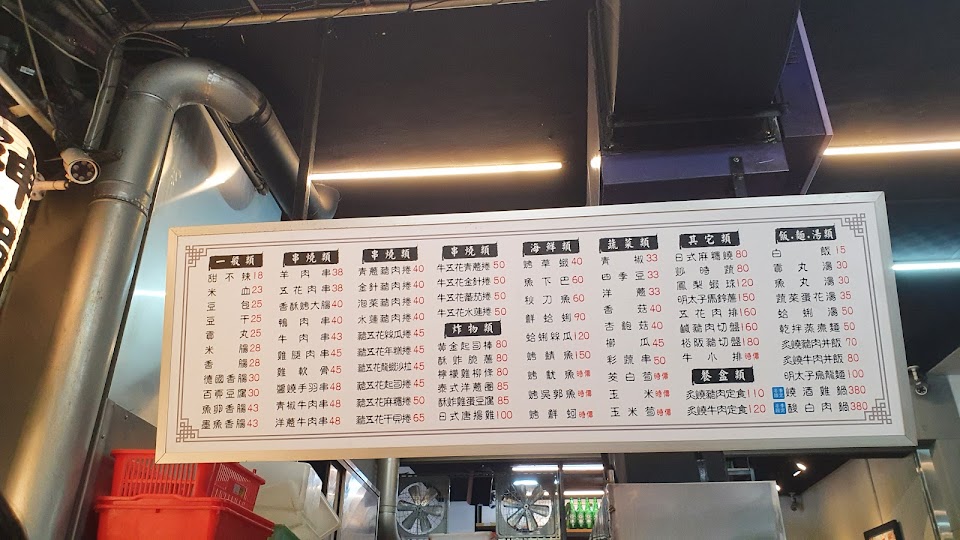 一般類
甜不辣18
米血23
豆包25
豆干25
貢丸25
米腸28
香腸28
德國香腸30
百頁豆腐30
魚卵香腸43
墨魚香腸43
串燒類
羊肉串38
五花肉串38
香酥鱈大腸40
鴨肉串40
牛肉串43
雞腿肉串45
雞軟骨45
醬燒手羽串48
青椒牛肉串48
洋蔥牛肉串48
串燒類
青蔥豬肉捲40
金針豬肉捲40
泡菜豬肉捲40
水蓮豬肉捲40
豬五花絲瓜捲45
豬五花年糕捲45
豬五花龍蝦沙拉45
豬五花起司捲45
豬五花麻糬捲50
豬五花干貝捲65
串燒類
牛五花青蔥捲50
牛五花金針捲50
牛五花蕃茄捲50
牛五花水蓮捲50
炸物類
黃金起司棒80
酥炸脆薯80
檸檬雞柳條80
泰式洋蔥圈85
酥炸雞蛋豆腐85
日式唐揚雞100
海鮮類
烤草蝦40
魚下巴60
秋刀魚60
鮮蛤蜊90
蛤蜊絲瓜120
烤鯖魚150
烤魷魚時價
烤吳郭魚時價
烤鮮蚵時價
蔬菜類
青椒33
四季豆33
洋蔥33
香菇40
杏鮑菇40
櫛瓜45
彩蔬串50
茭白筍時價
玉米時價
玉米筍時價
其它類
日式麻糬燒80
莎時蔬80
鳳梨蝦球120
明太子馬鈴薯150
五花肉排160
鹹豬肉切盤160
松阪豬切盤180
牛小排時價
餐盒類
炙燒豬肉定食110
炙燒牛肉定食120
飯.麵.湯類
白飯15
貢丸湯30
魚丸湯30
蔬菜蛋花湯35
蛤蜊湯50
乾拌蒸煮麵50
炙燒豬肉丼飯70
炙燒牛肉丼飯80
明太子烏龍麵100
燒酒雞鍋380
酸白肉鍋380